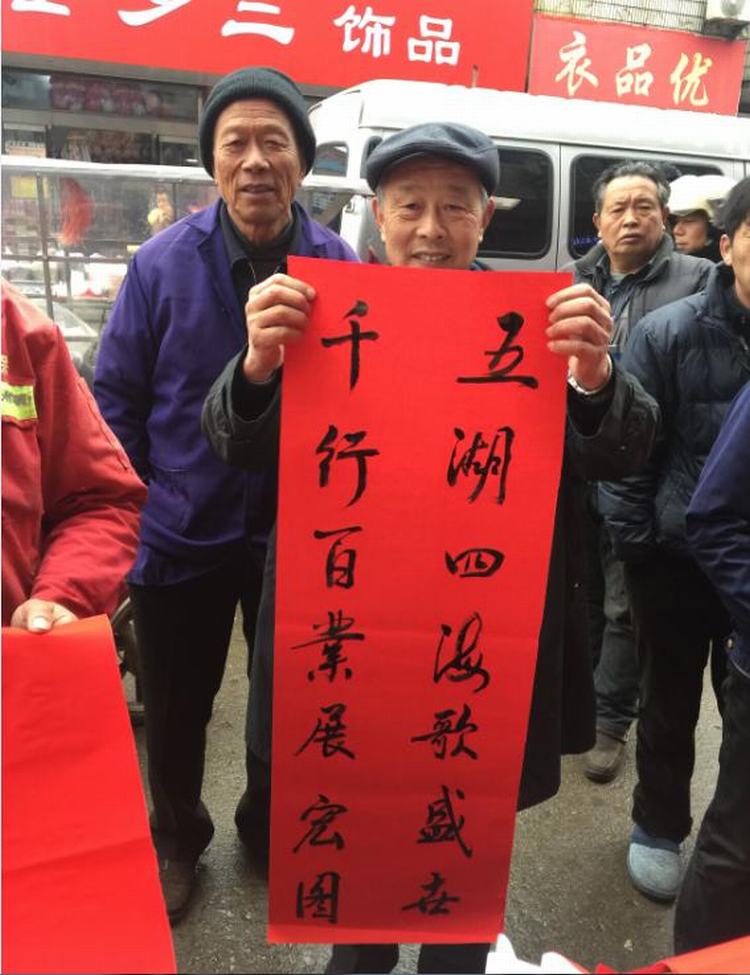 饰品
衣品优
五湖四海歌盛世
千行百业展宏图